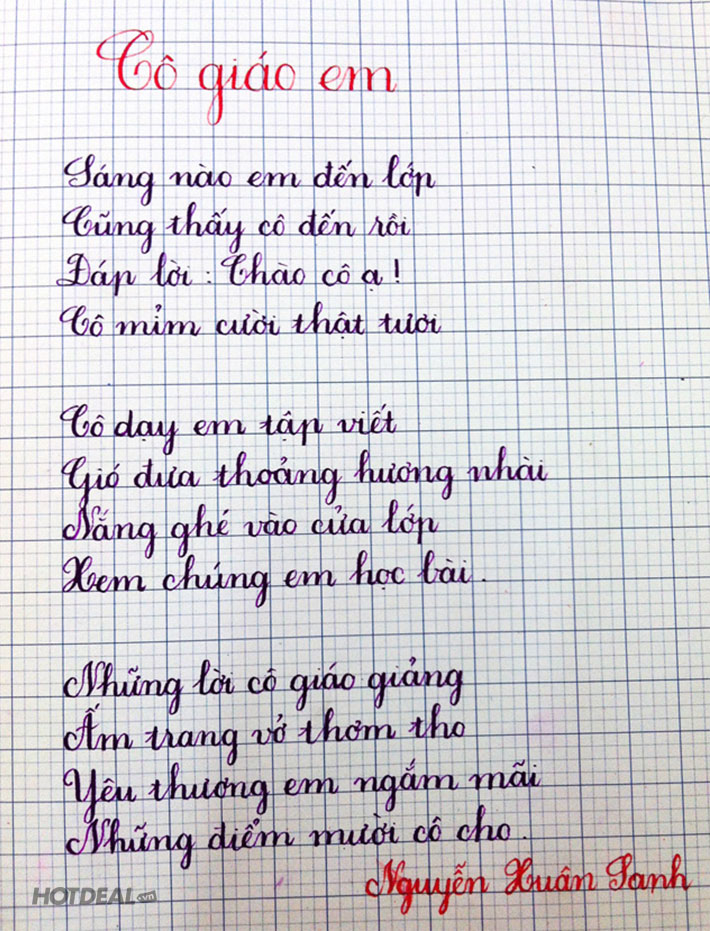 Cô giáo em
Sáng nào em đến lớp
Cũng thấy cô đến rồi
Đáp lời : Chào cô ạ !
Cô mỉm cười thật tươi
Cô dạy em tập viết
Gió đưa thoảng hương nhài
Nắng ghé vào cửa lớp
Xem chúng em học bài .
Những lời cô giáo giảng
Ấm trang vở thơm tho
Yêu thương em ngắm mãi
Những điểm mười cô cho .
Nguyễn Xuân Sanh
HOTDEAL.vn